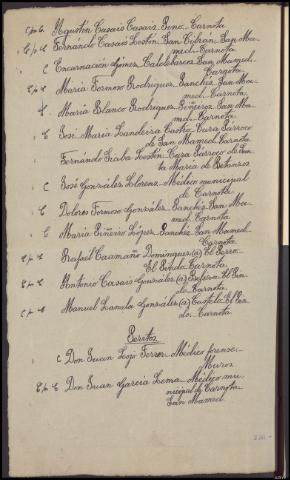 C/p C Agustín Casais Casais, Pino, Carnota
C/p C Fernando Casais Lestón, San Cibrán, San Ma-
med, Carnota
C Encarnación Gómez Caldebarcos, San Mamed,
Carnota
C/p C María Formoso Rodríguez, Sanchez, San Ma-
med, Carnota
C María Blanco Rodríguez, Piñeros, San Ma-
med, Carnota
C José María Landeira Castro, Cura Párroco
de San Mamed, Carnota
Fernando Lestón, Cura Párroco de San-
ta María de Betanzos
C José González Llorens, Médico municipal
de Carnota
C Dolores Formoso González, Sanchez, San Ma-
med, Carnota
C María Piñeiro López, Sanchez, San Mamed,
Carnota
C/p C Rafael Caamaño Dominguez (a) El Perro,
El Pindo, Carnota
C/p C Antonio Casais González (a) El Pin-
do, Carnota
C/p C Manuel González (a) El Pin-
do, Carnota
Peritos
C Don Juan Lojo Ferrer, Médico forense,
Muros
C/p C Don Juan García Lema, Médico mu-
nicipal de Carnota,
San Mamed